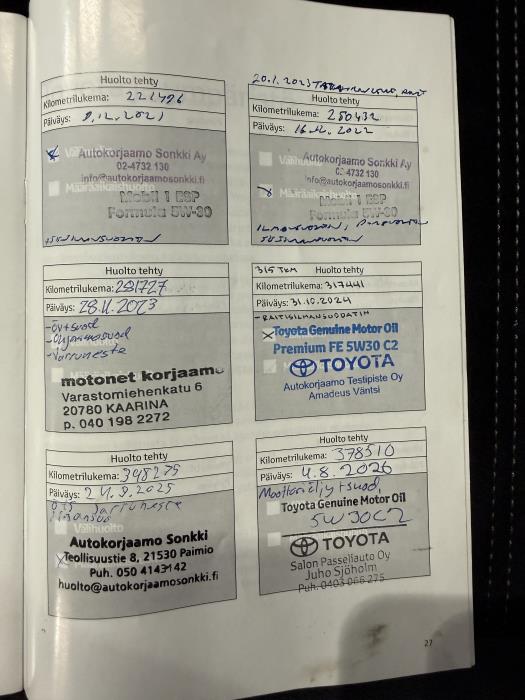 Huolto tehty
Kilometrilukema: 221496
Päiväys: 9.12.2021
Autokorjaamo Sonkki Ay
02-4732 130
info@autokorjaamosonkki.fi
Määräaikaishuolto
Mobil 1 ESP
Formula 5W-30
20.1.2023
Huolto tehty
Kilometrilukema: 250432
Päiväys: 2022
Autokorjaamo Sonkki Ay
02-4732 130
info@autokorjaamosonkki.fi
Mobil 1 ESP
Formula 5W-30
Huolto tehty
Kilometrilukema: 281727
Päiväys: 28.11.2023
-Öy+suod
-Jarruneste
motonet korjaamo
Varastomiehenkatu 6
20780 KAARINA
p. 040 198 2272
315 TKM Huolto tehty
Kilometrilukema: 317441
Päiväys: 31.10.2024
- RAITISILMANSUODATIN
Toyota Genuine Motor Oil
Premium FE 5W30 C2
TOYOTA
Autokorjaamo Testipiste Oy
Amadeus Väntsi
Huolto tehty
Kilometrilukema: 348275
Päiväys: 24.9.2025
Jarruneste
Autokorjaamo Sonkki
Teollisuustie 8, 21530 Paimio
Puh. 050 4143142
huolto@autokorjaamosonkki.fi
Huolto tehty
Kilometrilukema: 378510
Päiväys: 4.8.2026
Moottoriöljy+suod,
Toyota Genuine Motor Oil
5W30C2
TOYOTA
Salon Passeliauto Oy
Juho Sjöholm
Puh. 0403 066 275
27